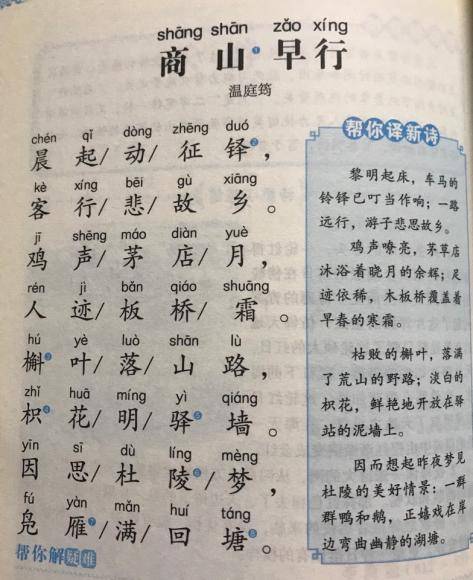 shāng shān zǎo xíng
商山①早行
温庭筠
chén qǐ dòng zhēng duó
晨起/动/征铎②，
kè xíng bēi gù xiāng
客行/悲/故乡。
jī shēng máo diàn yuè
鸡声/茅店/月，
rén jì bǎn qiáo shuāng
人迹/板桥/霜。
hú yè luò shān lù
槲③叶/落/山路，
zhǐ huā míng yì qiáng
枳④花/明/驿⑤墙。
yīn sī dù líng mèng
因思/杜陵⑥/梦，
fú yàn mǎn huí táng
凫雁⑦/满/回塘⑧。
帮你解疑难
帮你译新诗
黎明起床，车马的
铃铎已叮当作响；一路
远行，游子悲思故乡。
鸡声嘹亮，茅草店
沐浴着晓月的余辉；足
迹依稀，木板桥覆盖着
早春的寒霜。
枯败的槲叶，落满
了荒山的野路；淡白的
枳花，鲜艳地开放在驿
站的泥墙上。
因而想起昨夜梦见
杜陵的美好情景：一群
群鸭和鹅，正嬉戏在岸
边弯曲幽静的湖塘。